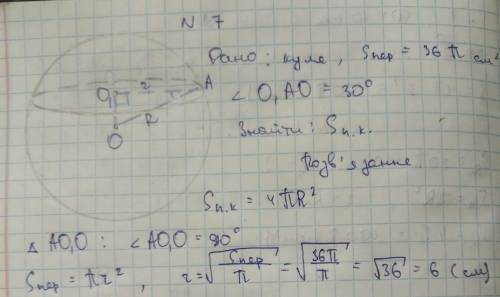 N 7
Дано: куля, Sпер = 36π см²
∠O₁AO = 30°
Знайти: Sп.к.
Розв'язання
Sп.к = 4πR²
O₁ r A
R
O
△ AO₁O : ∠AO₁O = 90°
Sпер = πr², r = √(Sпер/π) = √(36π/π) = √36 = 6 (см)